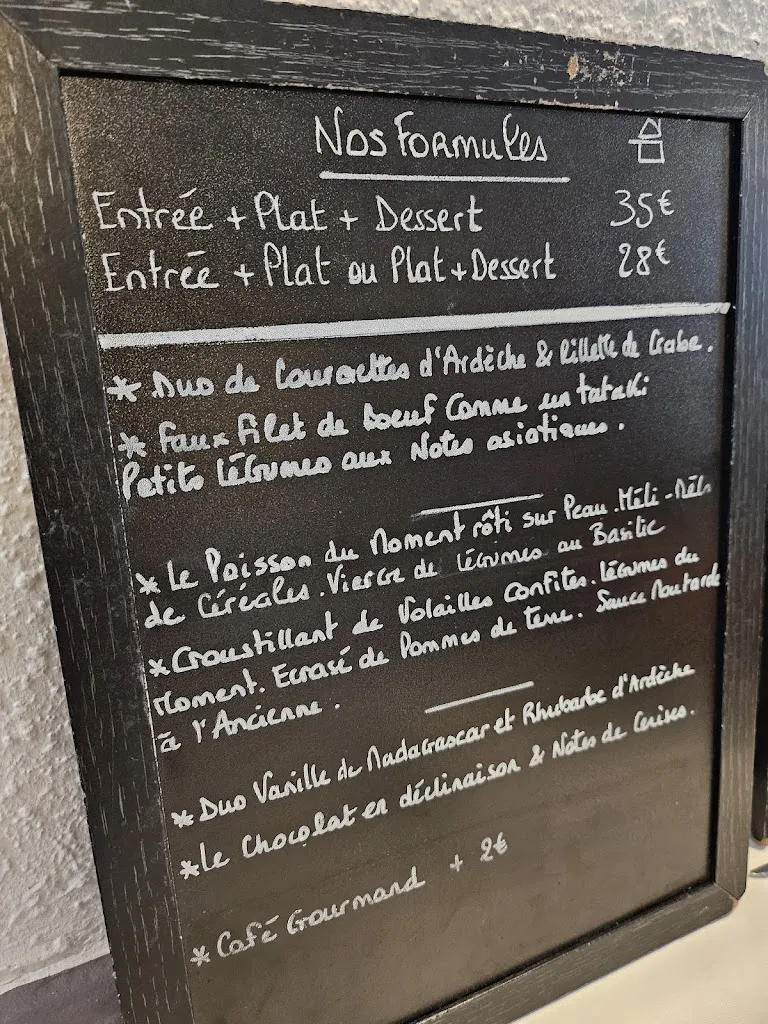 Nos Formules
Entrée + Plat + Dessert 35€
Entrée + Plat ou Plat + Dessert 28€
* Duo de Courgettes d'Ardèche & Rillette de Crabe.
* Faux Filet de Boeuf Comme un tataki
Petits Légumes aux Notes asiatiques.
* Le Poisson du Moment rôti sur Peau. Méli-Mélo
de Céréales. Vierge de Légumes au Basilic
* Croustillant de Volailles confites. Légumes du
Moment. Ecrasé de Pommes de terre. Sauce Moutarde
à l'Ancienne.
* Duo Vanille de Madagascar et Rhubarbe d'Ardèche
* Le Chocolat en déclinaison & Notes de Cerises.
* Café Gourmand + 2€